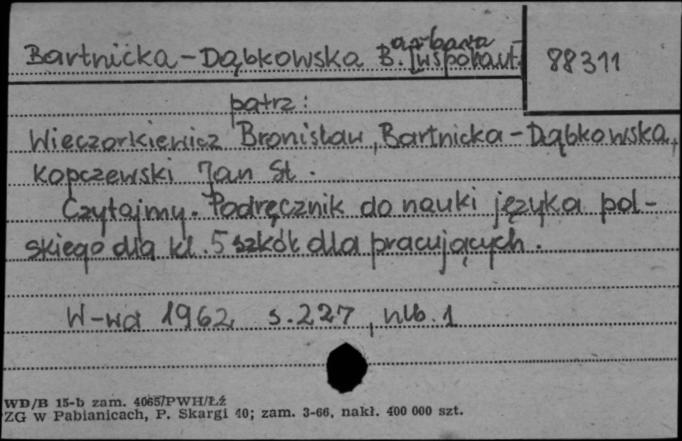 Bartnicka-Dąbkowska B.arbara [współaut.
88311
patrz:
Wieczorkiewicz Bronisław, Bartnicka-Dąbkowska,
Kopczewski Jan St.
Czytajmy. Podręcznik do nauki języka pol-
skiego dla kl. 5 szkół dla pracujących.
W-wa 1962, s.227, nlb.1
WD/B 15-b zam. 4065/PWH/Łź
ZG w Pabianicach, P. Skargi 40; zam. 3-66, nakł. 400 000 szt.